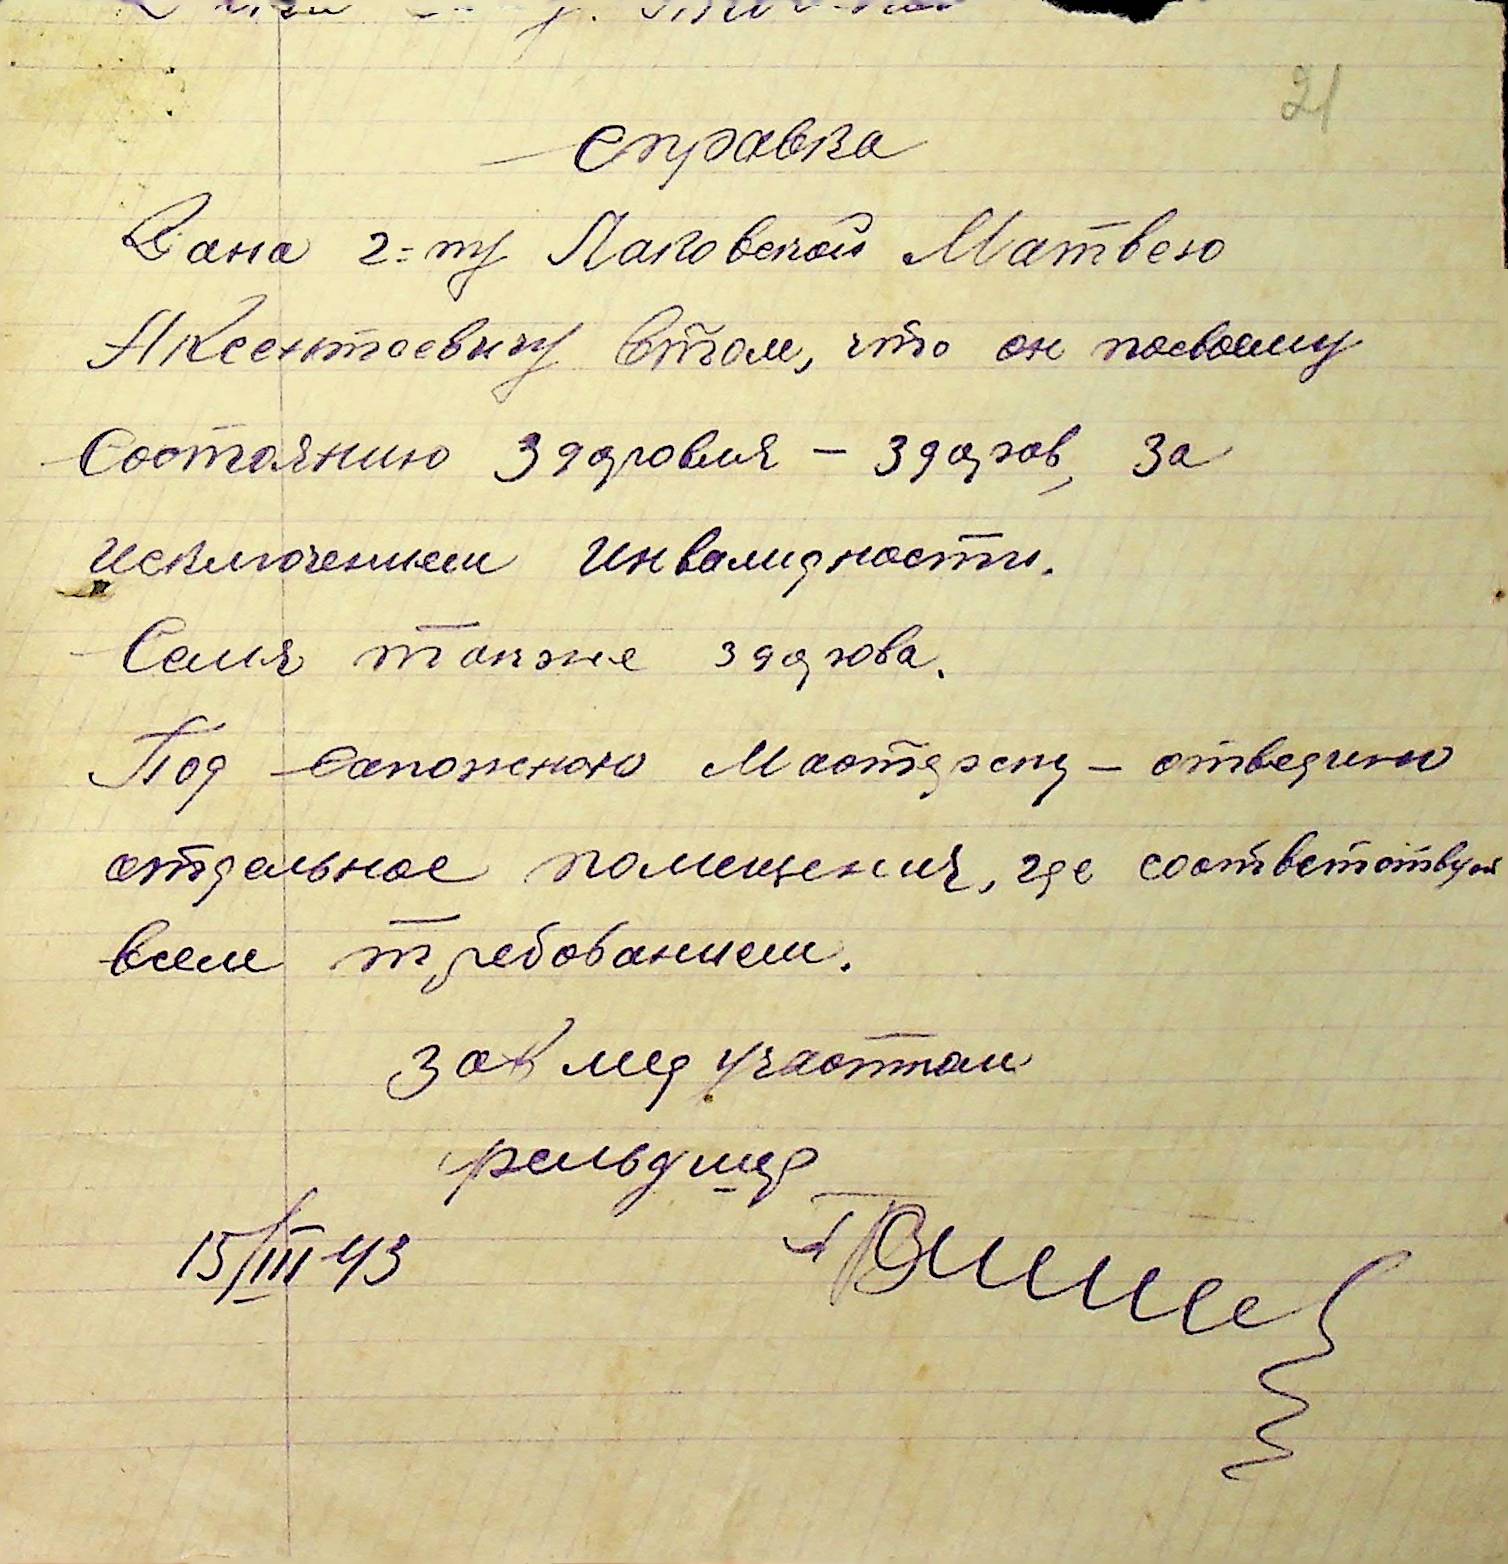 21
Справка
Дана г-ну Лаковской Матвею
Аксентоевичу Втом, что он посвоему
Состоянию Здоровия – Здоров, За
исключением Инвалидности.
Семя также здорова.
Под сапожною Мастерску – отведино
отдельное помещения, где соответствуй
всем требованием.
Зав мед участком
фельдшер
15/III 43